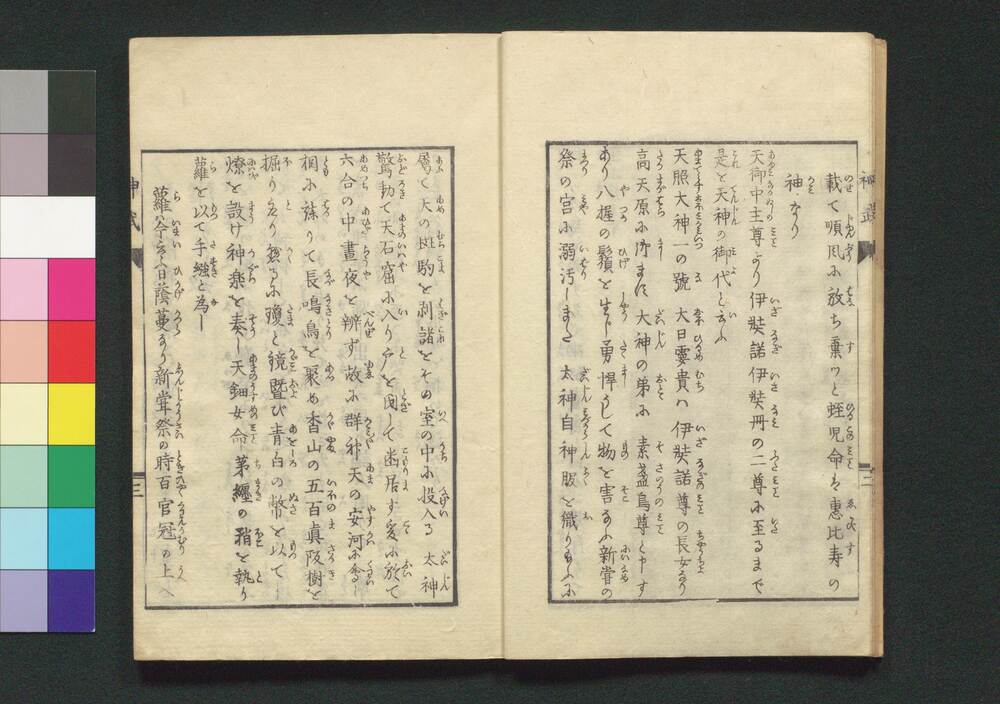 載て順風に放ち棄つと蛭児命は惠比寿の
神なり
天御中主尊より伊弉諾伊弉冊の二尊に至るまで
是を天神の御代と云ふ
天照大神一の號 大日孁貴ハ伊弉諾尊の長女なり
高天原に御ます 大神の弟に 素盞烏尊と申す
あり八握の鬚を生じ勇悍うして物を害なふ新甞の
祭の宮に溺汚しまた 太神自神服を織り
層て天の斑駒を剥諸をその室の中に投入る 太神
驚動て天石窟に入り戸を閇して幽居す爰に於て
六合の中晝夜を辨ず故に群神天の安河に會し
相に謀りて長鳴鳥を聚め香山の五百眞阪樹を
掘り 瓊と鏡曁び青白の幣を以てし
燎を設け神楽を奏し天鈿女命茅纏の矟を執り
蘿を以て手繦と為し
蘿今云日蔭蔓なり新甞祭の時百官冠の上へ
神武
三
神武
二